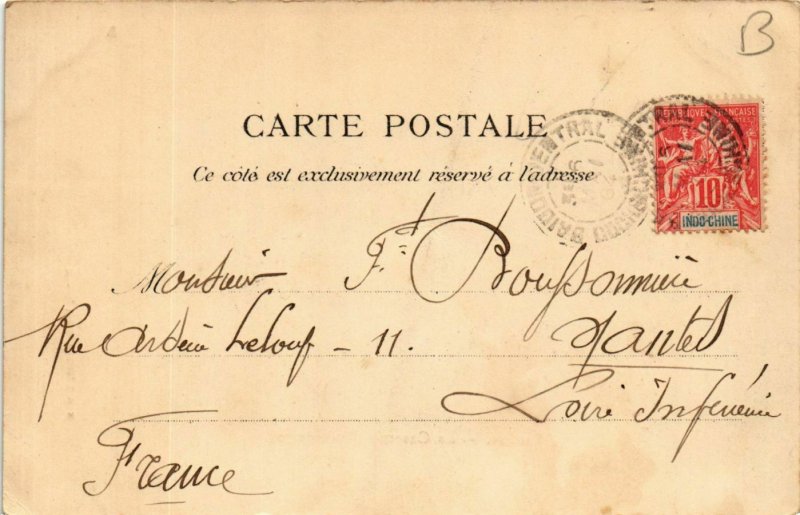 B
RÉPUBLIQUE FRANÇAISE
10
INDO-CHINE
CENTRAL
CARTE POSTALE
Ce côté est exclusivement réservé à l'adresse
Monsieur Ft Bouffonnière
Rue Arsène Leloup - 11. Nantes
Loire Inférieure
France